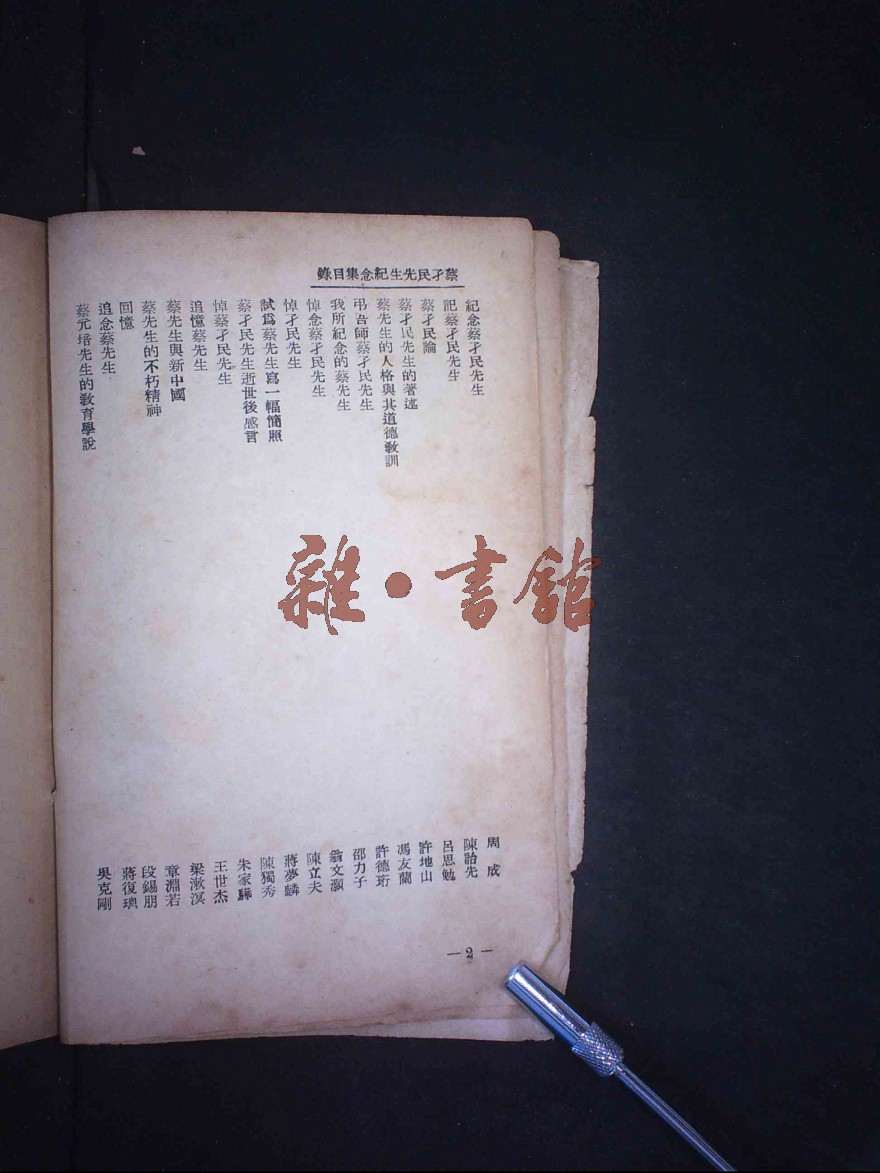 蔡孑民先生紀念集目錄
紀念蔡孑民先生 周成
記蔡孑民先生 陳詒先
蔡孑民論 呂思勉
蔡孑民先生的著述 許地山
蔡先生的人格與其道德敎訓 馮友蘭
弔吾師蔡孑民先生 許德珩
我所紀念的蔡先生 邵力子
悼念蔡孑民先生 翁文灝
悼孑民先生 陳立夫
試爲蔡先生寫一幅簡照 蔣夢麟
蔡孑民先生逝世後感言 陳獨秀
悼蔡孑民先生 朱家驊
追憶蔡先生 王世杰
蔡先生與新中國 梁漱溟
蔡先生的不朽精神 章淵若
回憶 段錫朋
追念蔡先生 蔣復璁
蔡元培先生的敎育學說 吳克剛
— 2 —
雜·書館